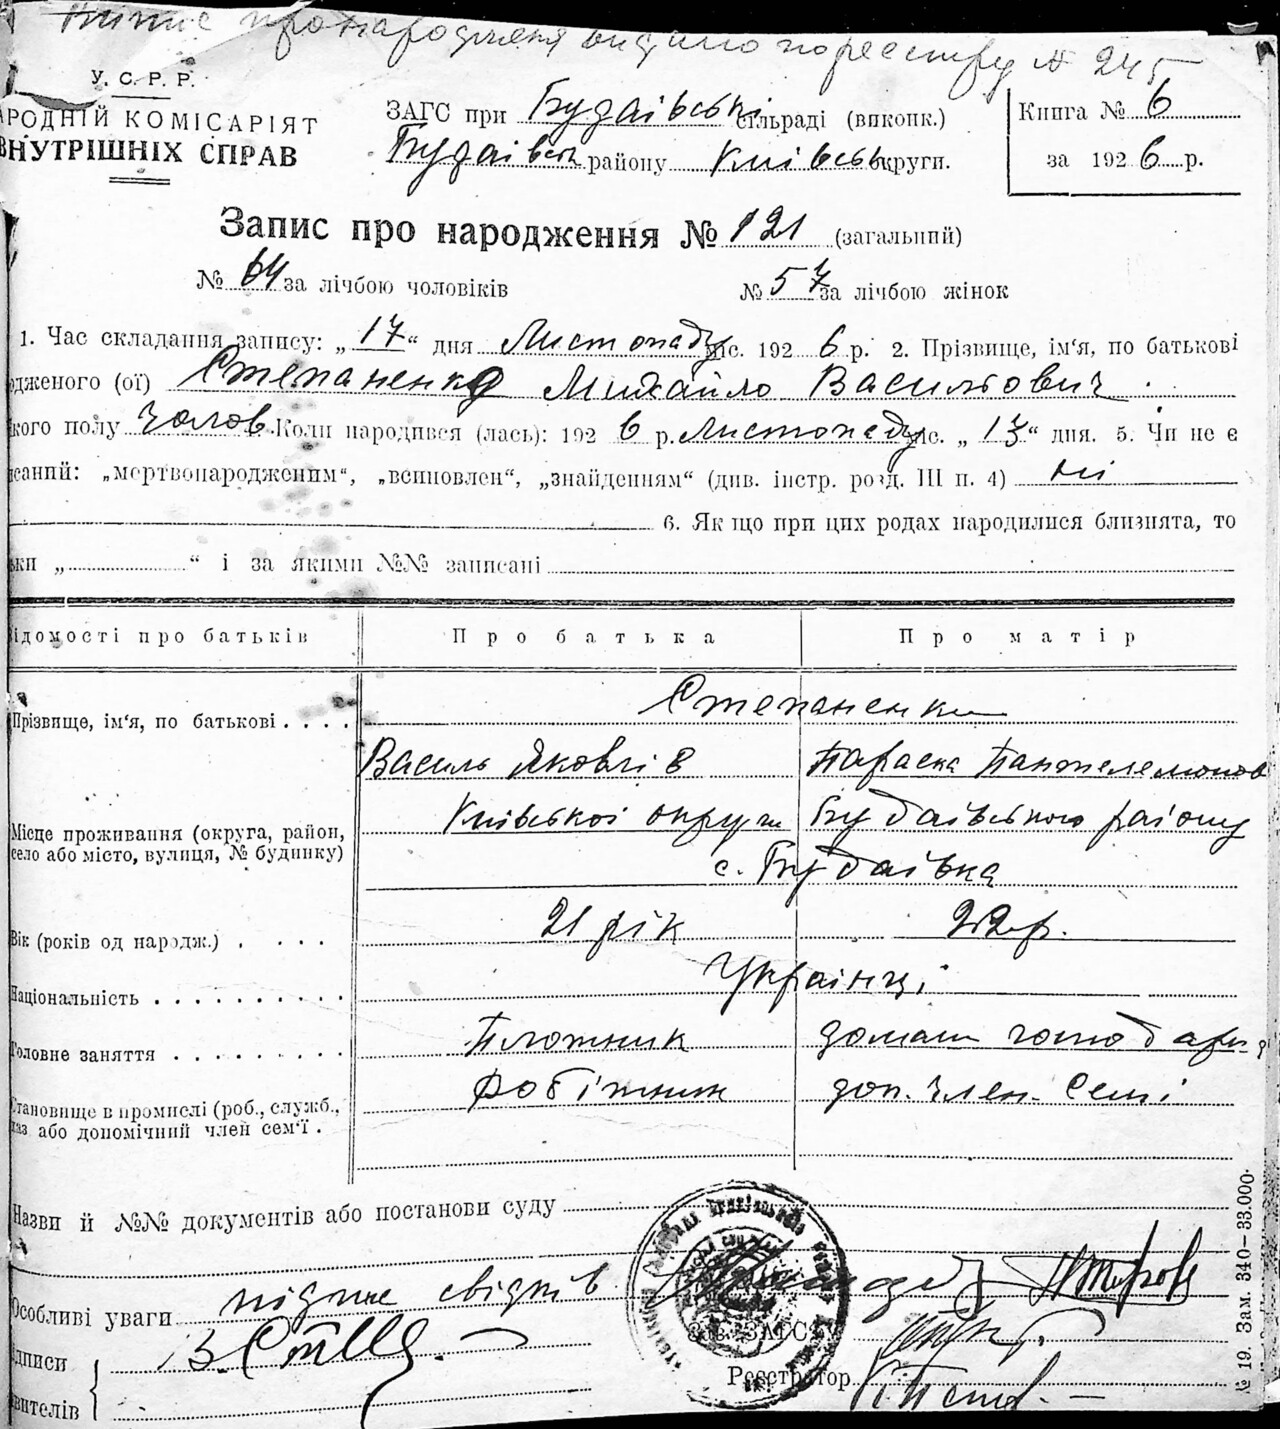 Випис про народження видано по реєстру № 245
У. С. Р. Р.
АРОДНІЙ КОМІСАРІЯТ
ВНУТРІШНІХ СПРАВ
ЗАГС при Будаівські сільраді (виконк.)
Будаівськ району Київськ округи.
Книга № 6
за 1926 р.
Запис про народження № 121 (загальний)
№ 64 за лічбою чоловіків № 57 за лічбою жінок
1. Час складання запису: „17“ дня Листопаду міс. 1926 р. 2. Прізвище, ім‘я, по батькові
одженого (ої) Степаненко Михайло Васильович
кого полу Чолов. Коли народився (лась): 1926 р. Листопаду міс. „13“ дня. 5. Чи не є
исаний: „мертвонародженим“, „всиновлен“, „знайденням“ (див. інстр. розд. III п. 4) ні
6. Як що при цих родах народилися близнята, то
ьки „ “ і за якими №№ записані
ідомості про батьків Про батька Про матір
Прізвище, ім‘я, по батькові . . . . Степаненки
Василь Яковлів Параска Пантелемонов
Місце проживання (округа, район, Київської округи Будаівського району
село або місто, вулиця, № будинку) с. Будаівка
Вік (років од народж.) . . . . . 21 рік 22 р.
Національність . . . . . . . . . . Українці
Головне заняття . . . . . . . . . Плотник домаш господарк
Становище в промислі (роб., служб., Робітник доп. член. Семі
каз або допомічний член сем‘ї .
Назви й №№ документів або постанови суду
Особливі уваги підпис свідків
дписи
вителів
Зав. ЗАГС‘У
Реєстратор
№ 19. Зам. 340–33.000.